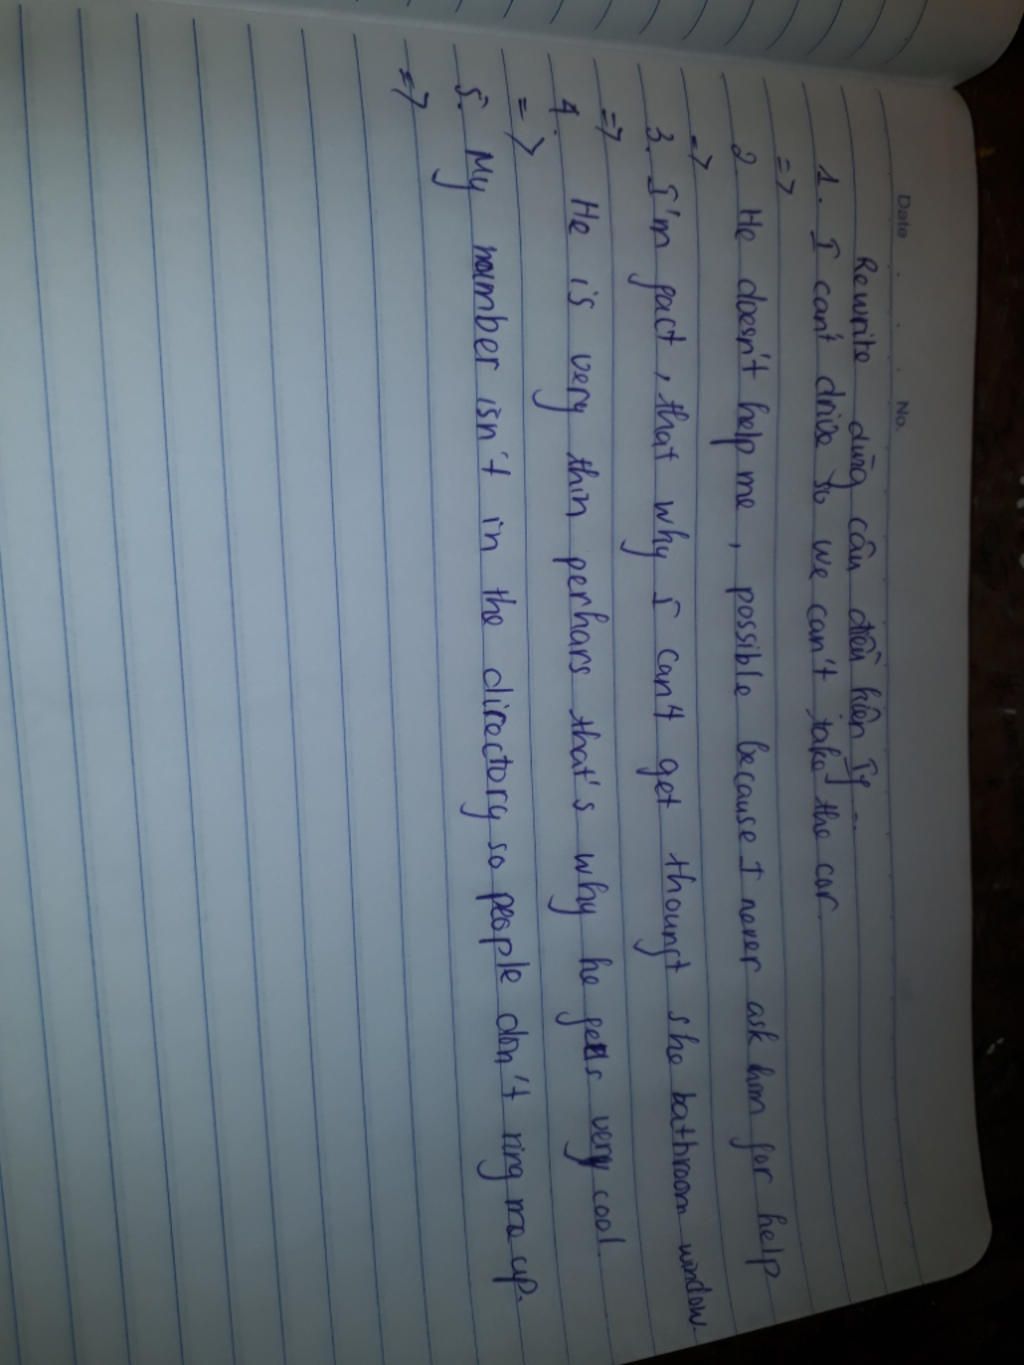 Date . . . No.
Rewrite dùng câu điều kiện
1. I can't drive so we can't take the car.
=>
2. He doesn't help me, possible because I never ask him for help
=>
3. I'm gact, that why I can't get thoungt she bathroom window.
=>
4. He is very thin perhars that's why he gets very cool.
=>
5. My number isn't in the directory so people don't ring me up.
=>